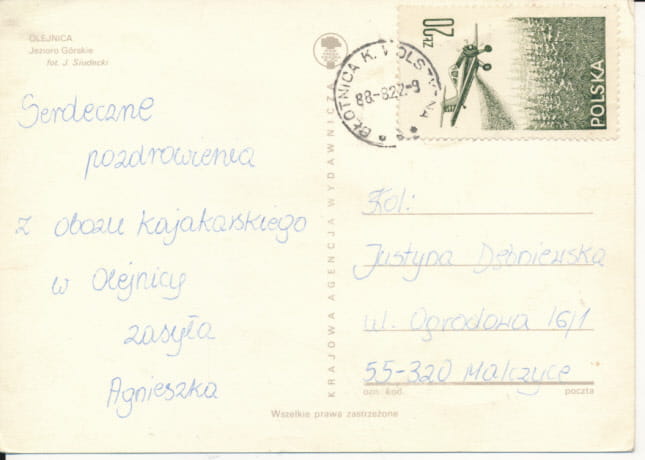 OLEJNICA
Jezioro Górskie
fot. J. Siudecki
Serdeczne
pozdrowienia
z obozu kajakarskiego
w Olejnicy
zasyła
Agnieszka
KRAJOWA AGENCJA WYDAWNICZA
BŁOTNICA K. WOLSZTYNA
88-8.22-9
20 ZŁ
POLSKA
Kol:
Justyna Dębniewska
ul. Ogrodowa 16/1
55-320 Malczyce
ozn. kod.
poczta
Wszelkie prawa zastrzeżone